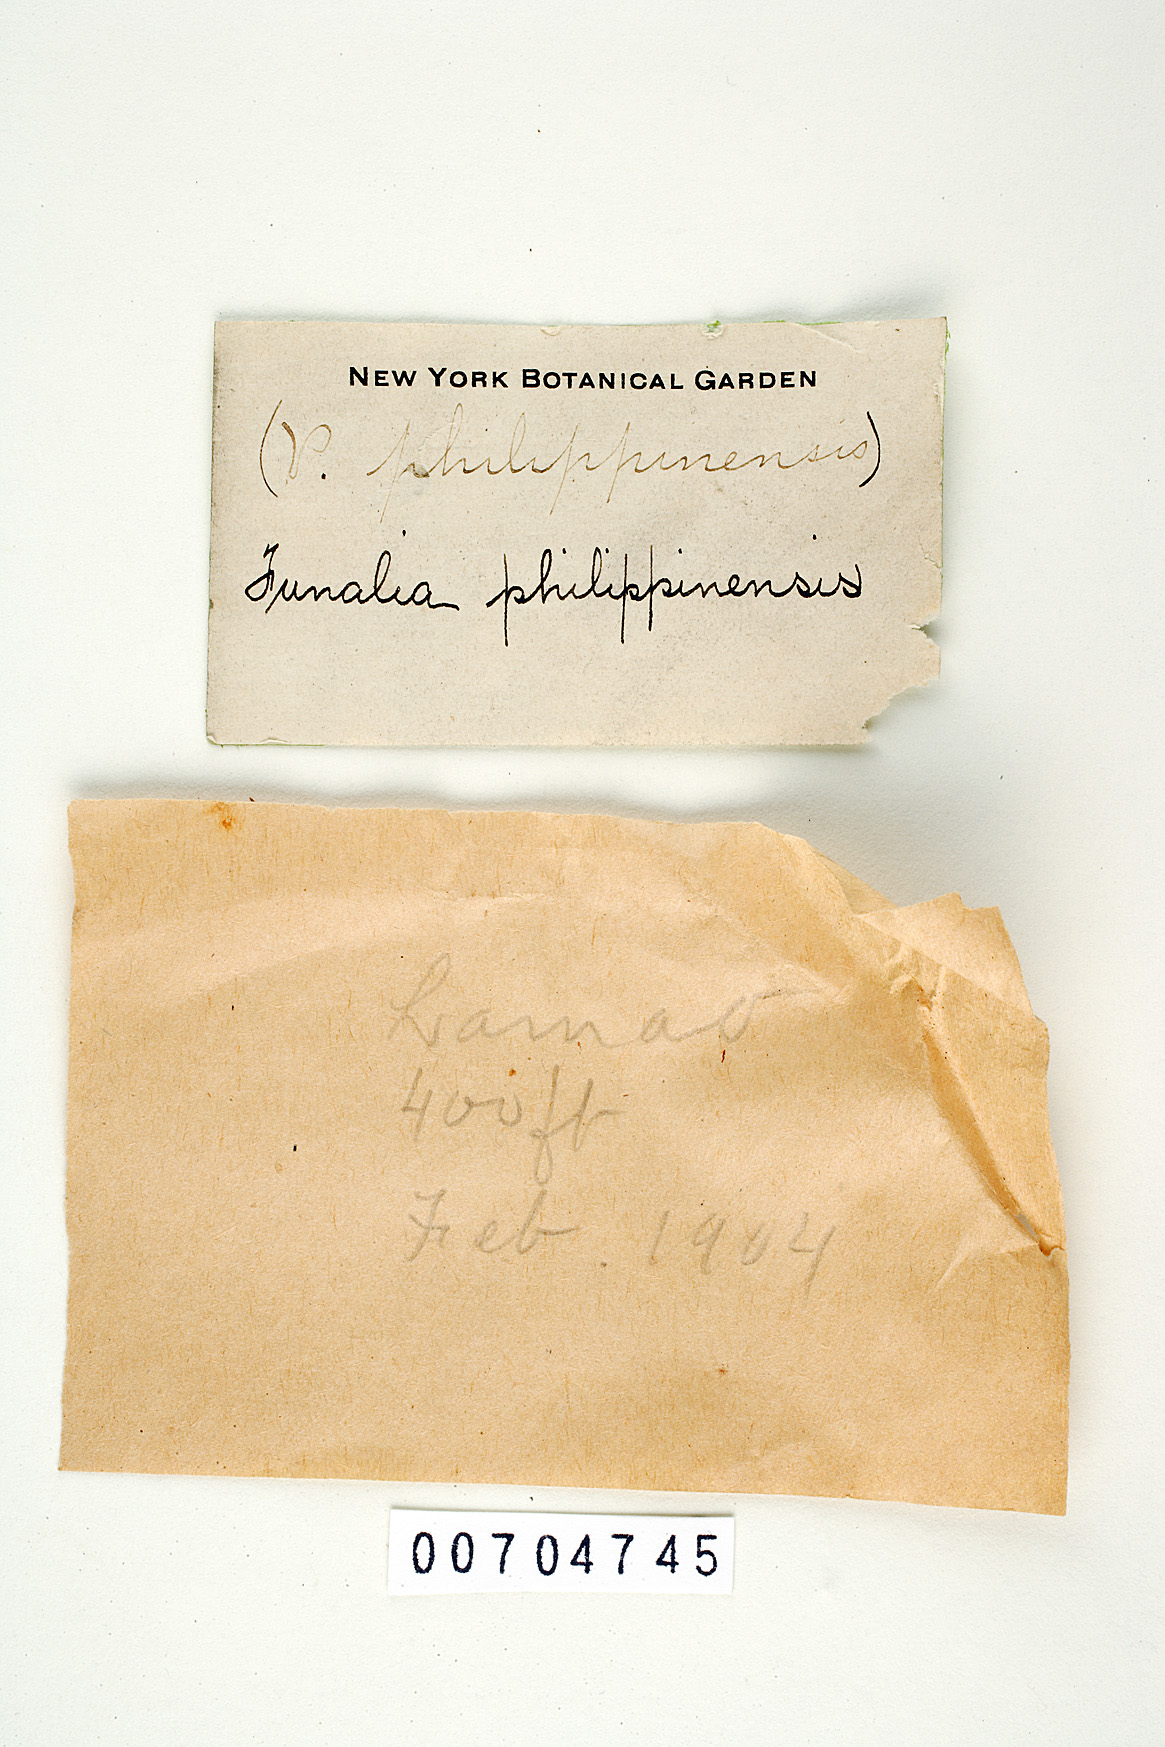 NEW YORK BOTANICAL GARDEN
(P. philippinensis)
Funalia philippinensis
Lamao
400 ft
Feb. 1904
00704745